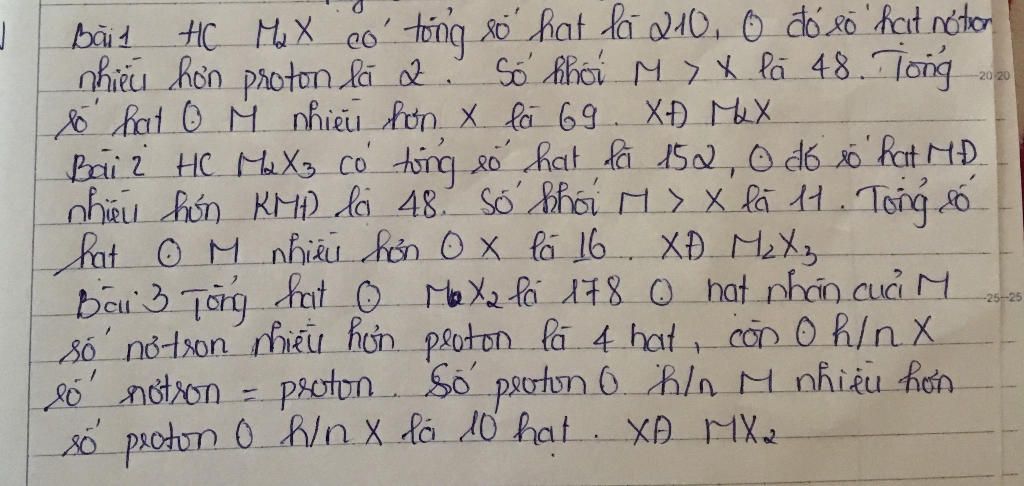 Bài 1 HC M2X có tổng số hạt là 210, ʘ đó số hạt nơtron
nhiều hơn proton là 2. Số khối M > X là 48. Tổng
20-20
số hạt ʘ M nhiều hơn X là 69. XĐ M2X
Bài 2 HC M2X3 có tổng số hạt là 152, ʘ đó số hạt MĐ
nhiều hơn KMĐ là 48. Số khối M > X là 11. Tổng số
hạt ʘ M nhiều hơn ʘ X là 16. XĐ M2X3
Bài 3 Tổng hạt ʘ MX2 là 178 ʘ hạt nhân của M
25-25
số nơtron nhiều hơn proton là 4 hạt, còn ʘ h/n X
số nơtron = proton. Số proton ʘ h/n M nhiều hơn
số proton ʘ h/n X là 10 hạt. XĐ MX2